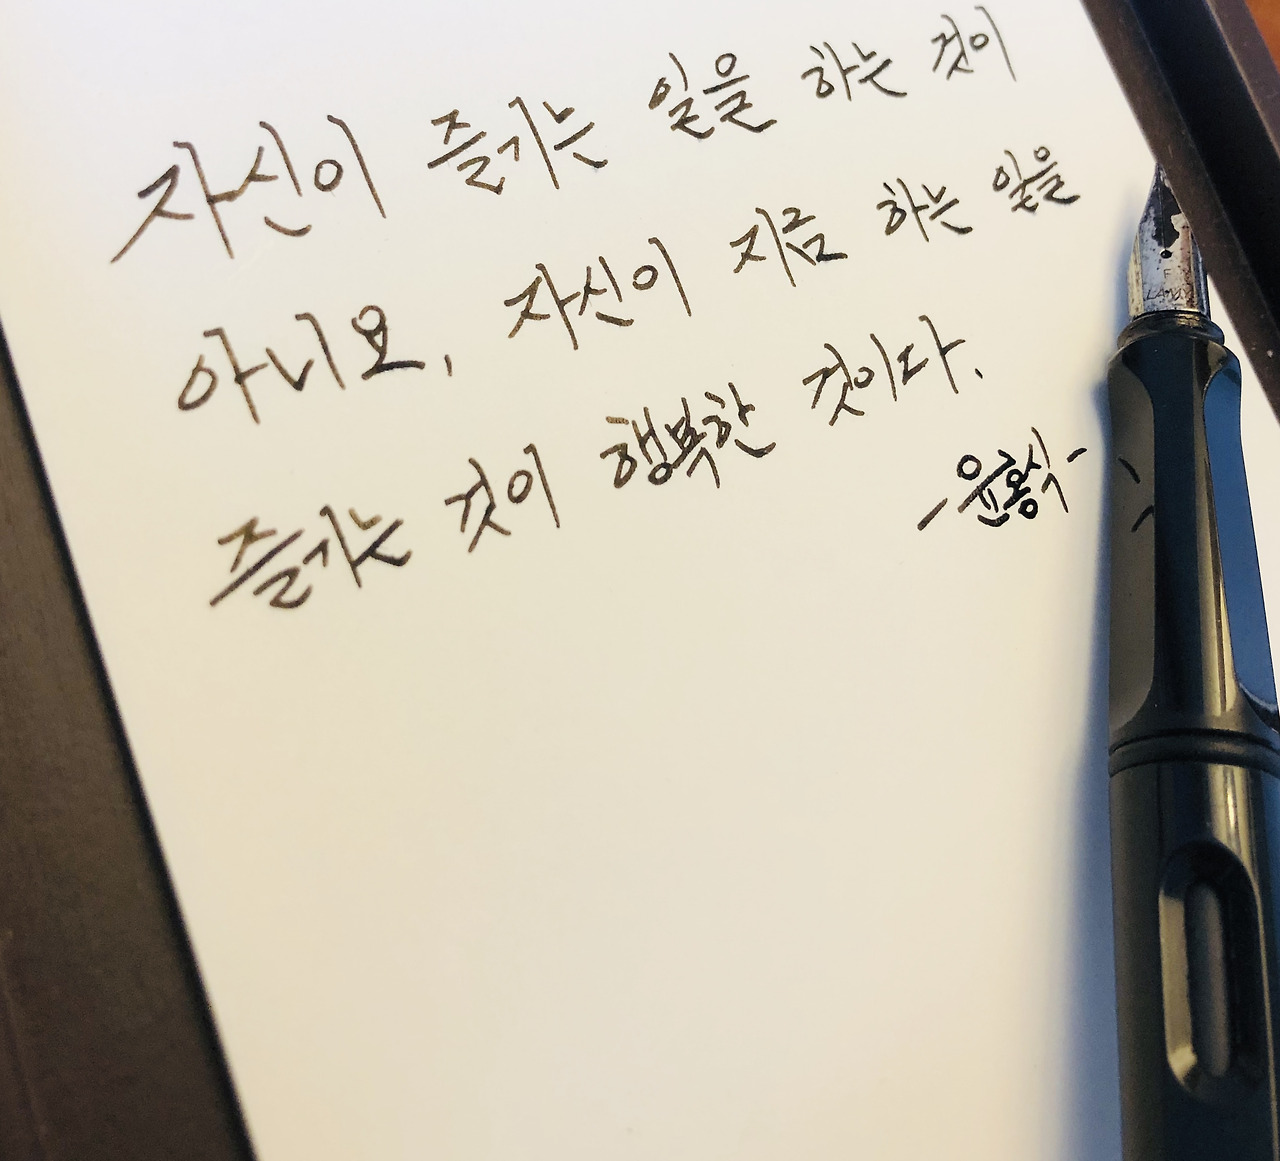 자신이 즐기는 일을 하는 것이
아니요, 자신이 지금 하는 일을
즐기는 것이 행복한 것이다.
-윤홍식-
F
LAMY